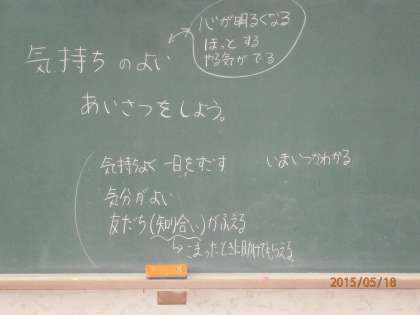 心が明るくなる
ほっとする
やる気がでる
気持ちのよい
あいさつをしよう。
気持ちよく一日をすごす
いまいつかわかる
気分がよい
友だち(知り合い)がふえる
こまったときに助けてもらえる
2015/05/18